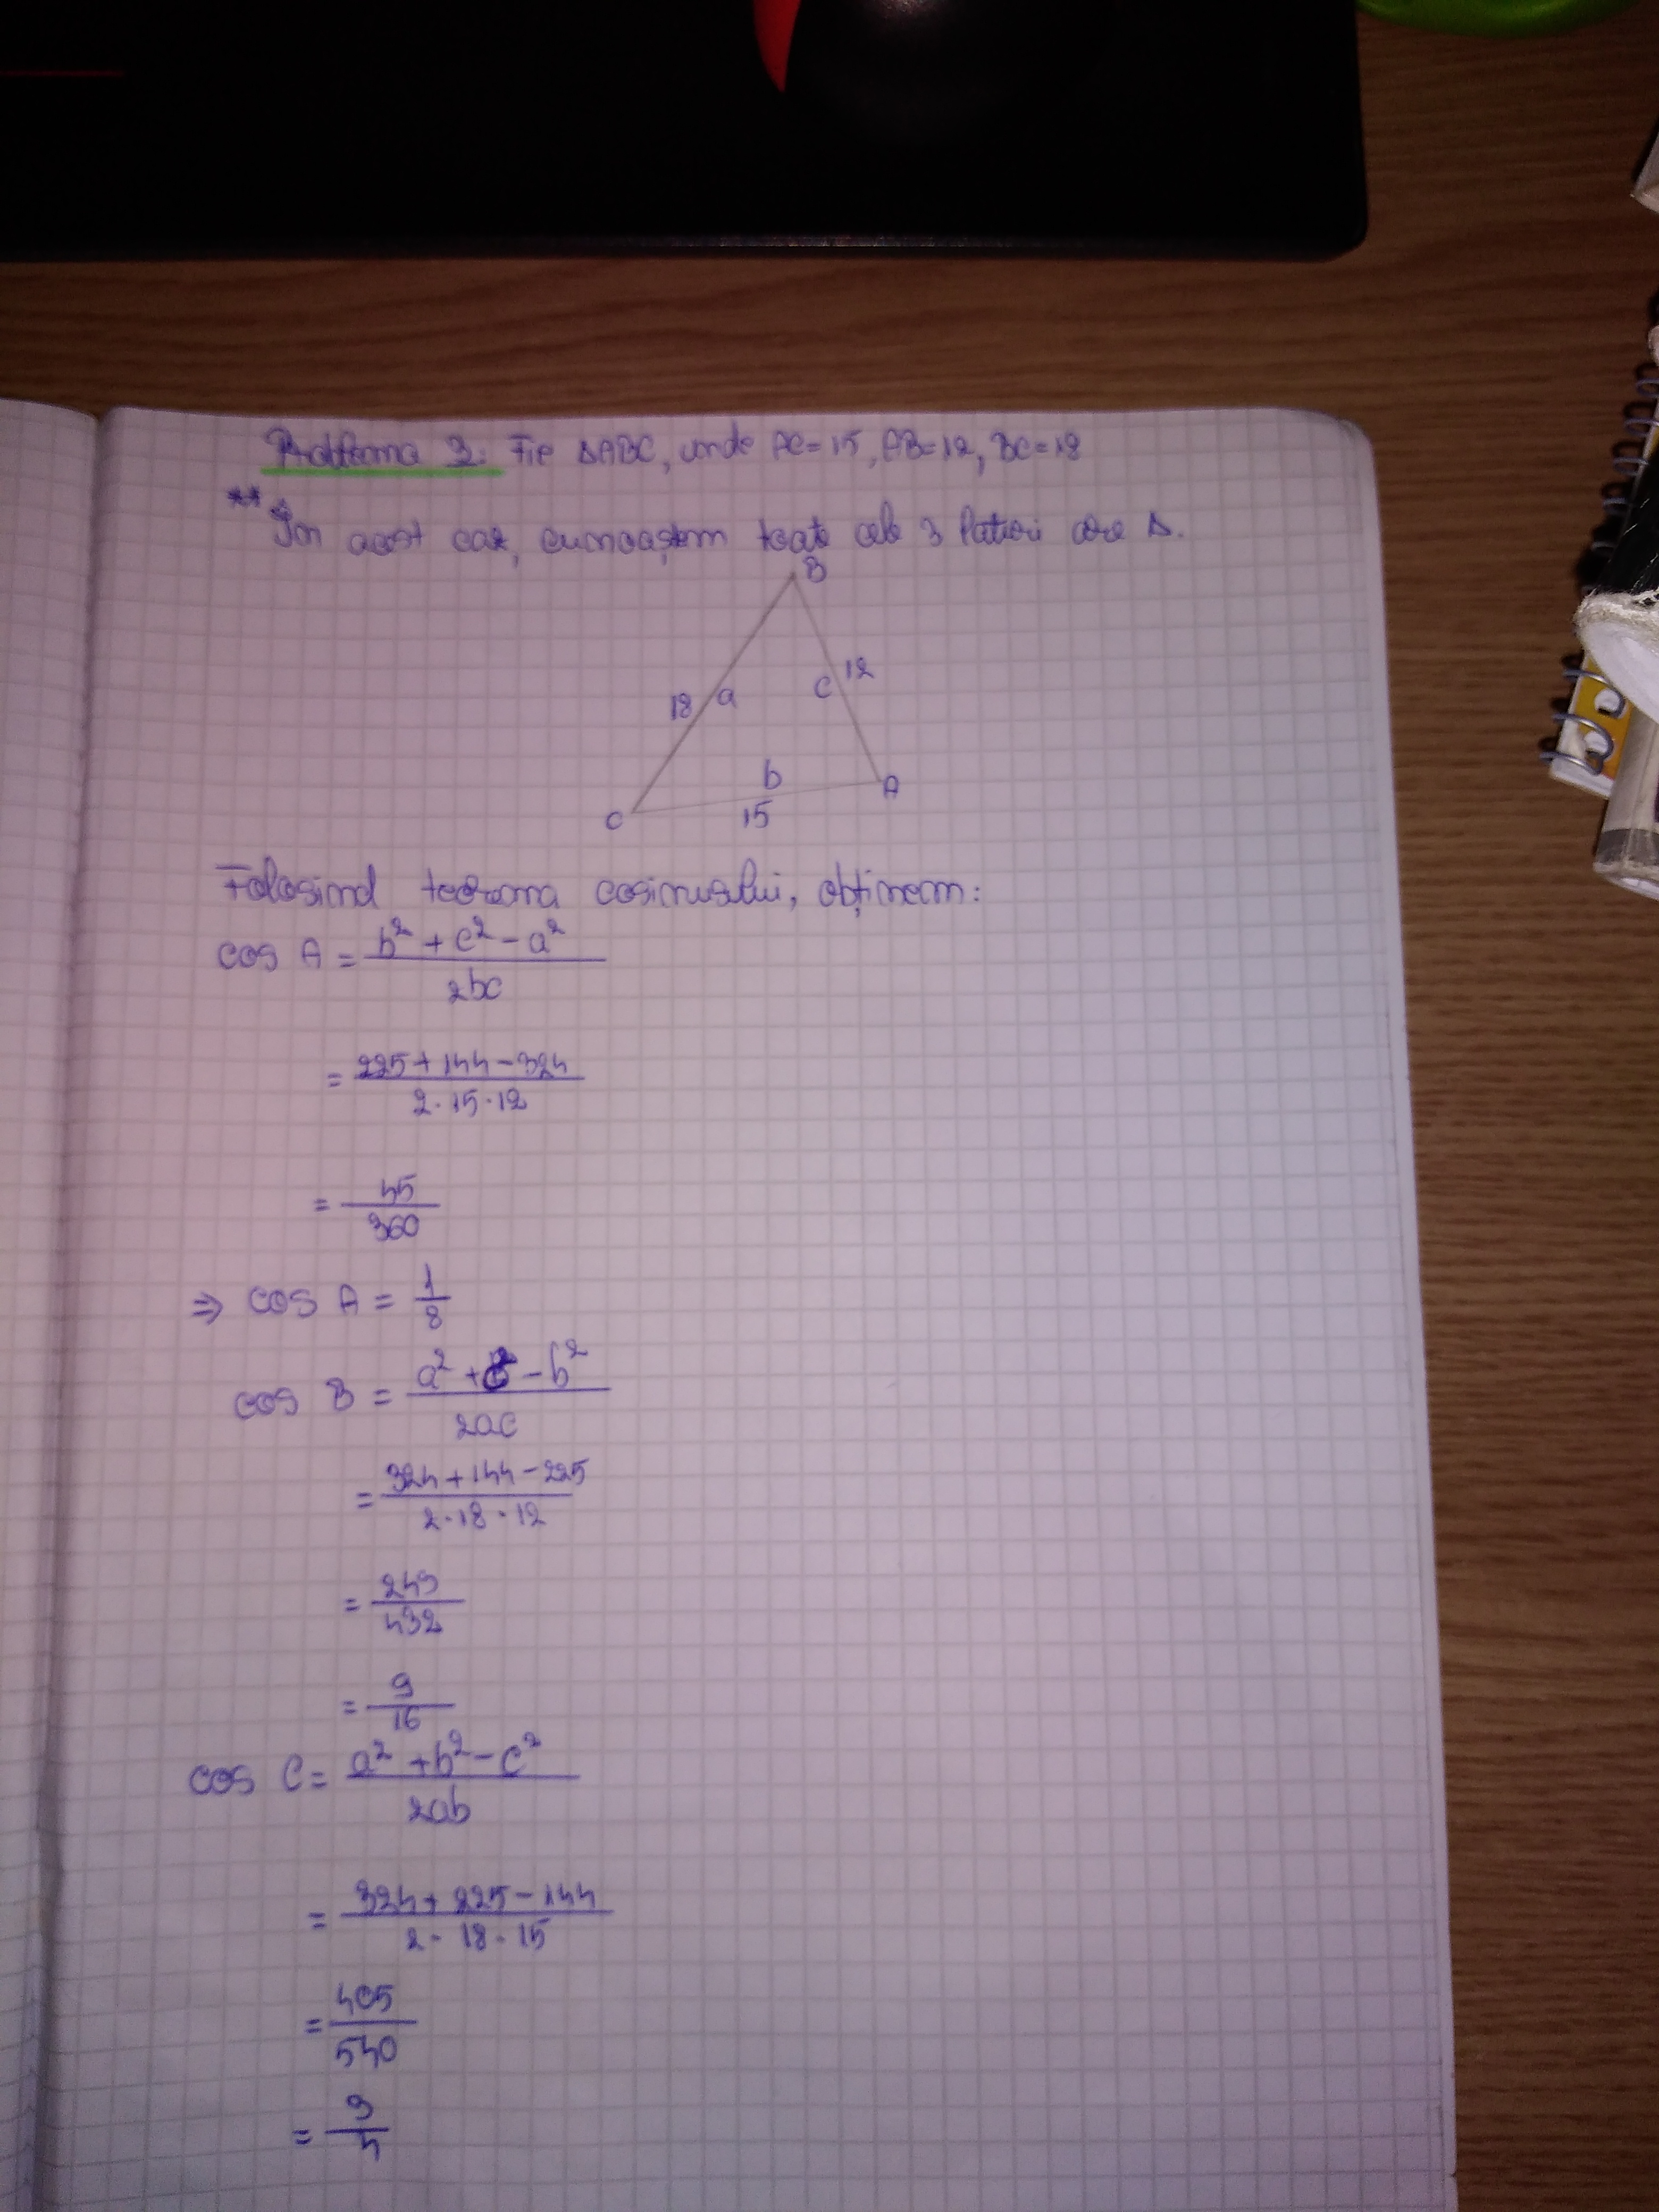 Problema 3: Fie ΔABC, unde AC=15, AB=12, BC=18
** În acest caz, cunoaștem toate cele 3 laturi ale Δ.
B
12
c
18 a
b
A
C
15
Folosind teorema cosinusului, obținem:
cos A = (b² + c² - a²) / 2bc
= (225 + 144 - 324) / (2·15·12)
= 45/360
⇒ cos A = 1/8
cos B = (a² + c² - b²) / 2ac
= (324 + 144 - 225) / (2·18·12)
= 243/432
= 9/16
cos C = (a² + b² - c²) / 2ab
= (324 + 225 - 144) / (2·18·15)
= 405/540
= 3/4